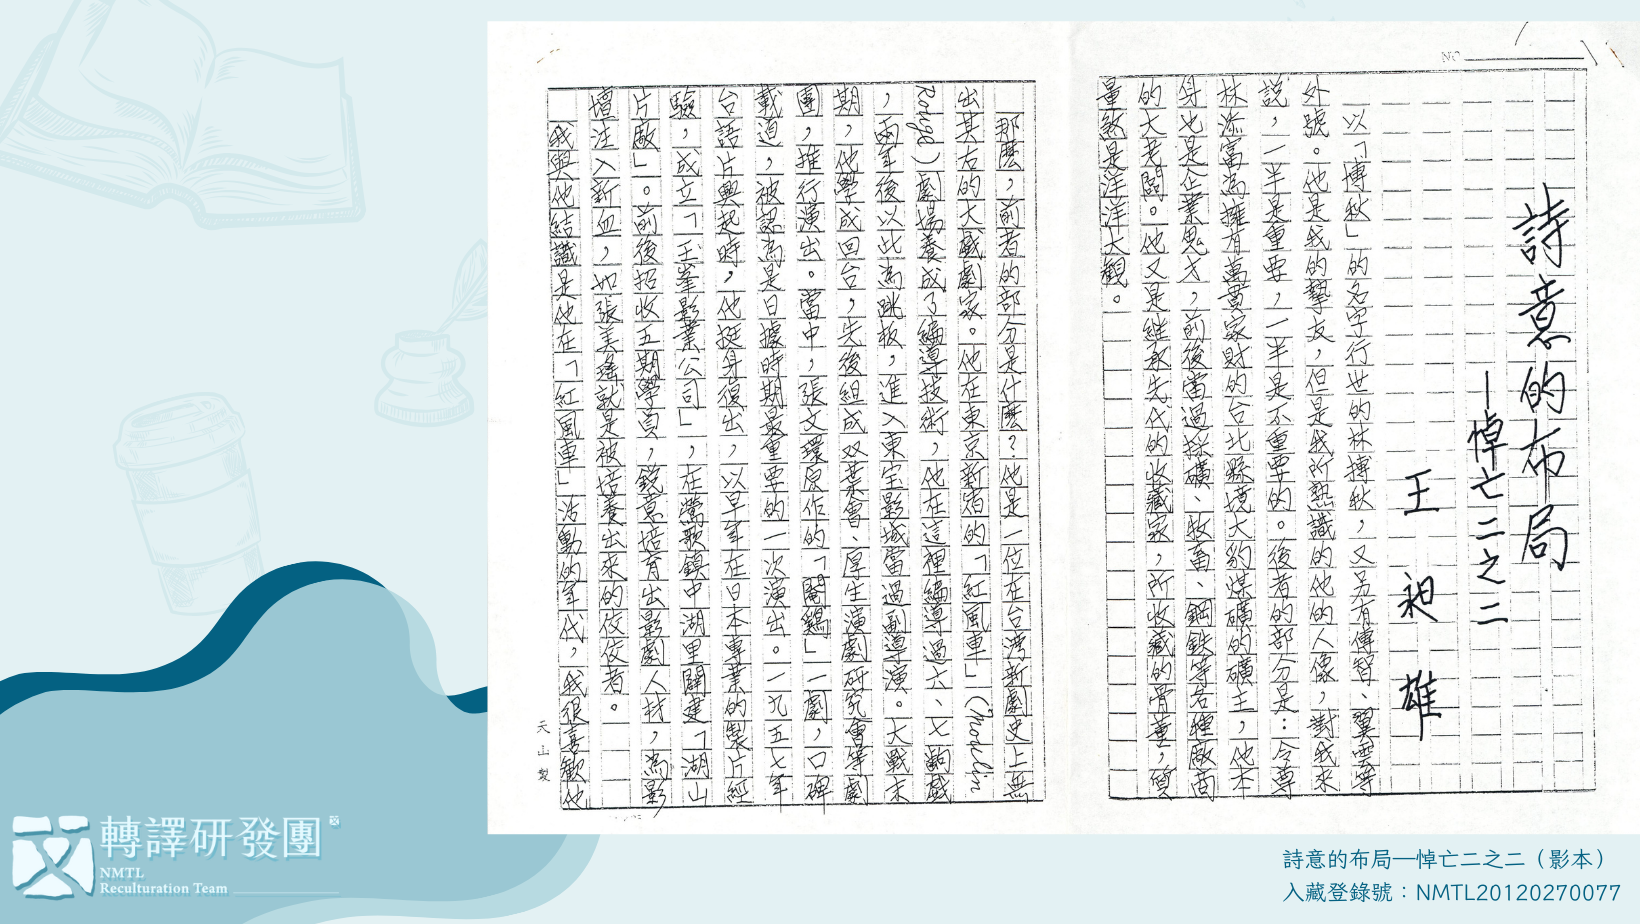 詩意的布局
—悼亡二之二
王昶雄
以「博秋」的名字行世的林摶秋，又另有傳智、翼雲等
外號。他是我的摯友，但是我所熟識的他的人像，對我來
說，一半是重要，一半是不重要的。後者的部分是：令尊
林添富為擁有萬貫家財的台北縣境大豹煤礦的礦主，他本
身也是企業鬼才，前後當過採礦、牧畜、鋼鉄等各種廠商
的大老闆。他又是継承先代的收藏家，所收藏的骨董，質
量煞是洋洋大觀。
那麼，前者的部分是什麼？他是一位在台灣新劇史上無
出其右的大戲劇家。他在東京新宿的「紅風車」（Moulin
Rouge）劇場養成了編導技術，他在這裡編導過六、七齣戲
，兩年後以此為跳板，進入東宝影城當過副導演。大戰末
期，他學成回台，先後組成双葉會、厚生演劇研究會等劇
團，推行演出。當中，張文環原作的「閹鷄」一劇，口碑
載道，被認為是日據時期最重要的一次演出。一九五七年
台語片興起時，他挺身復出，以早年在日本專業的製片經
驗，成立「玉峯影業公司」，在鶯歌鎮中湖里闢建「湖山
片廠」。前後招收五期學員，銳意培育出影劇人材，為影
壇注入新血，如張美瑤就是被培養出來的佼佼者。
我與他結識是他在「紅風車」活動的年代，我很喜歡他
天山製
No
轉譯研發團
NMTL
Reculturation Team
詩意的布局—悼亡二之二（影本）
入藏登錄號：NMTL20120270077